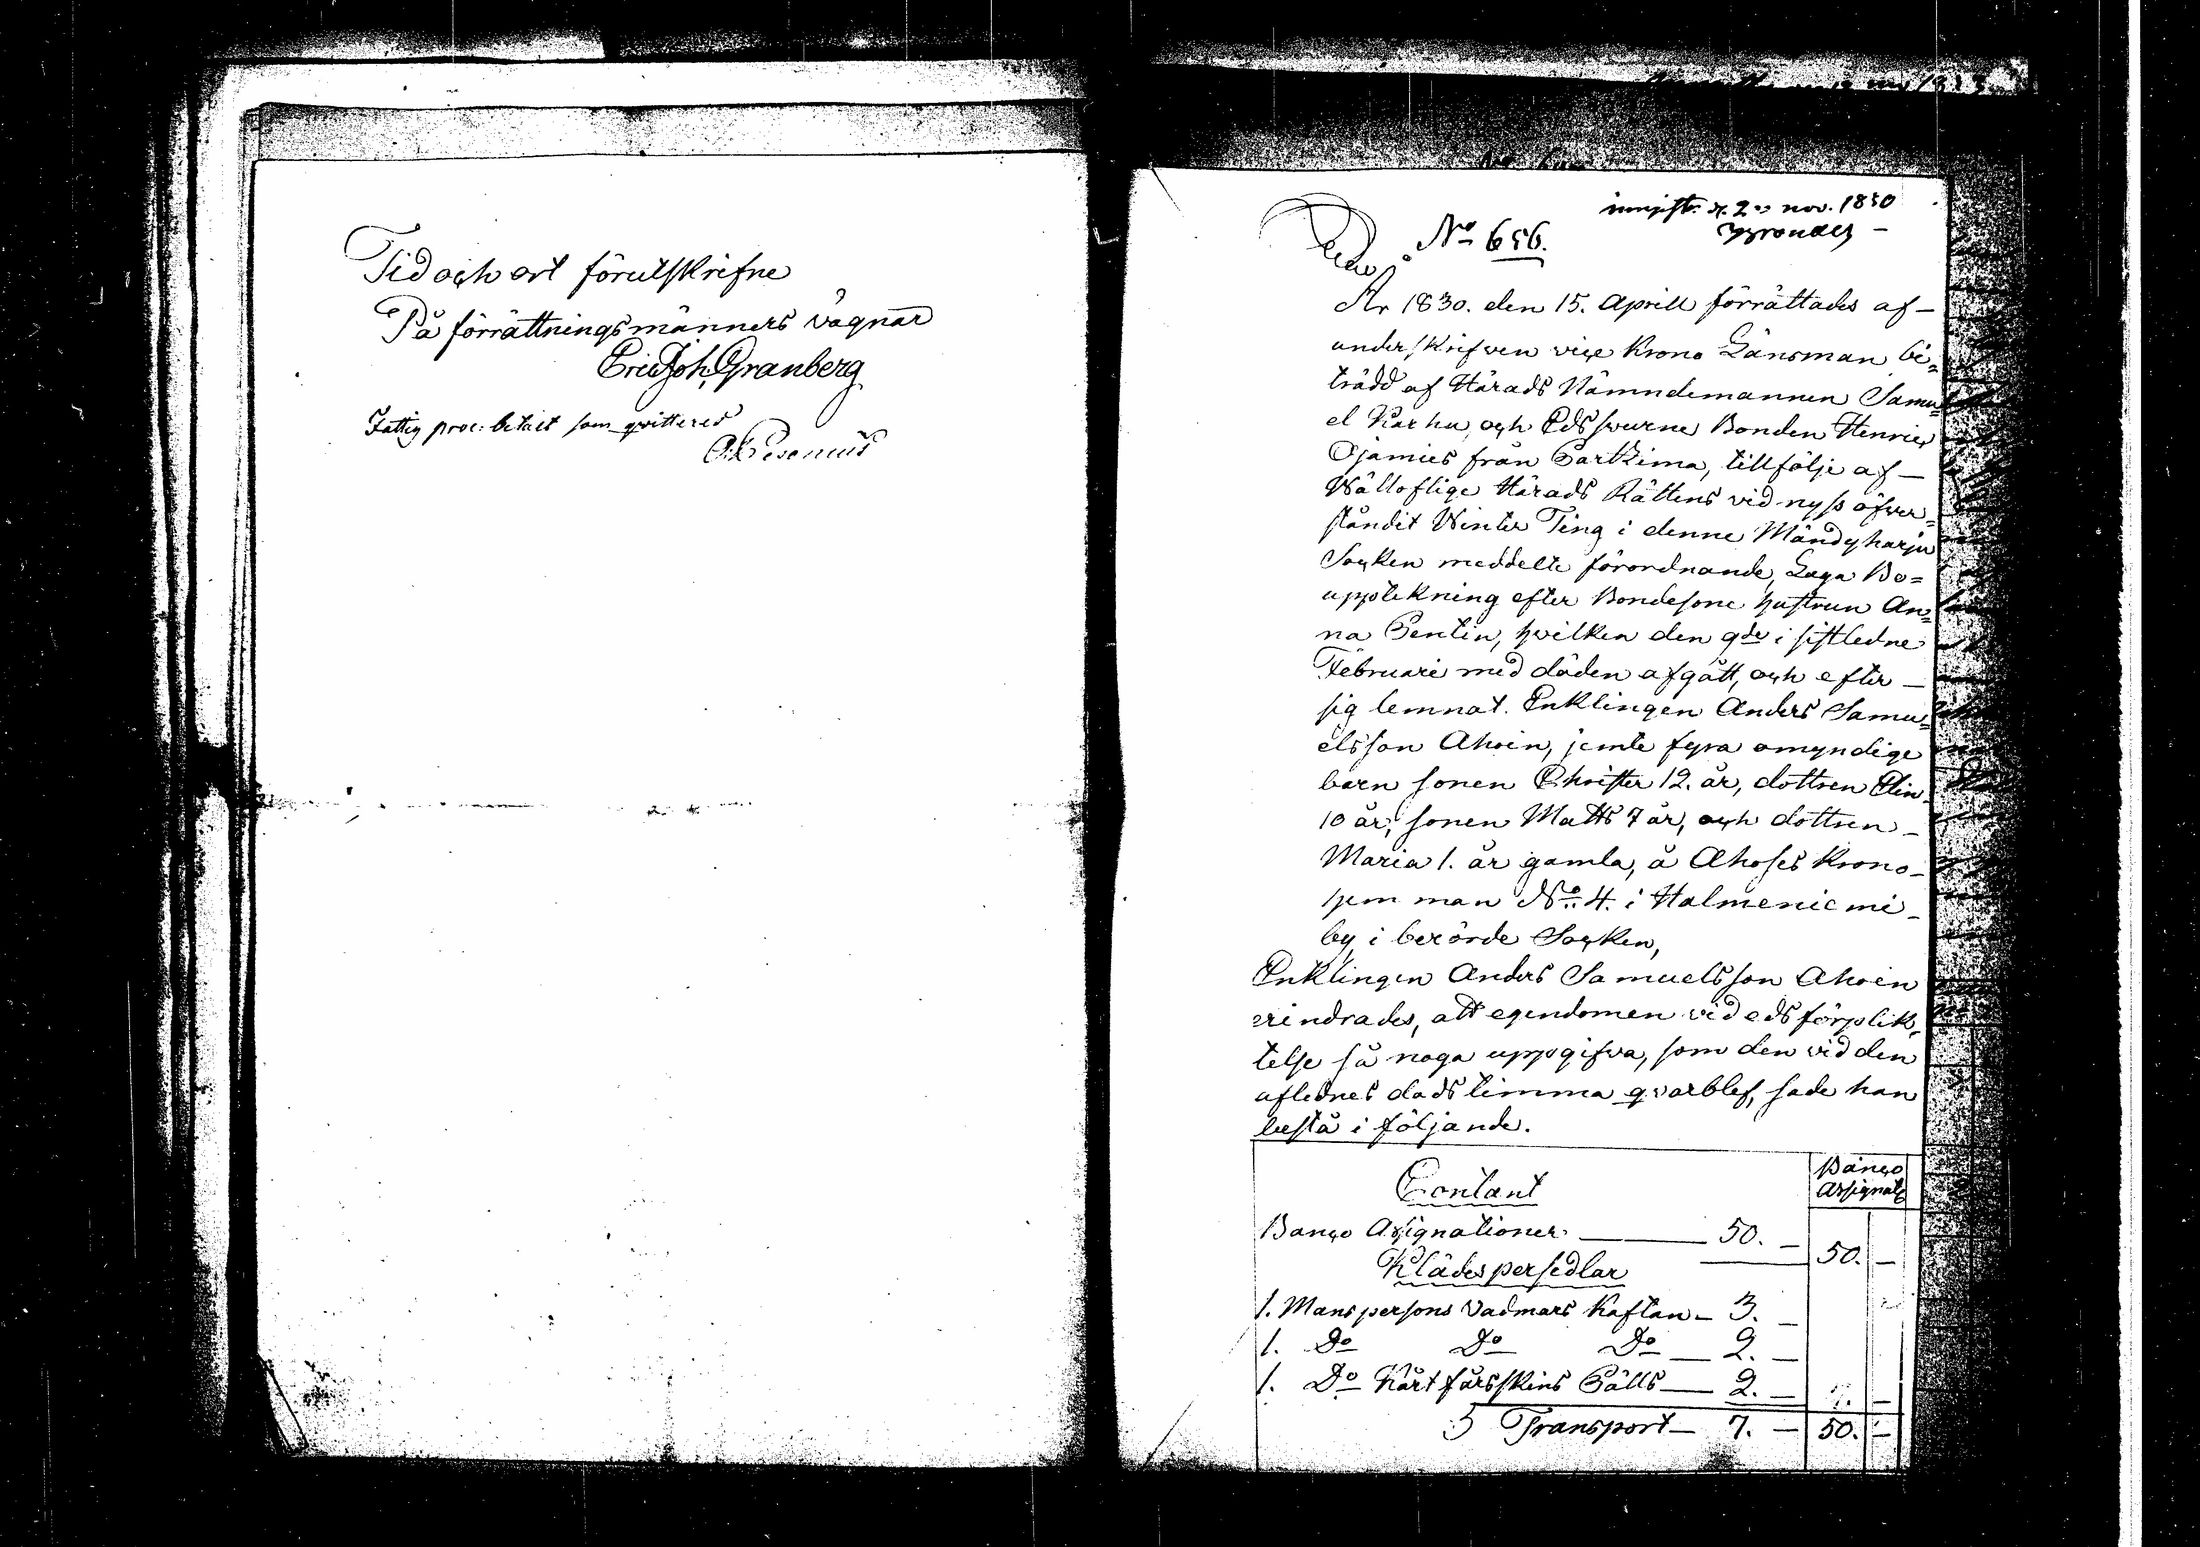 Tid och ort förutskrifne
På förrättningsmänners vägnar
Eric Joh. Granberg
Fattig proc: betalt som qvitteres
No 656.
ingift. d. 2 nov. 1830
År 1830. den 15. Aprill förrättades af
underskrifven vice Krono Länsman bi=
trädd af Härads Nämndemannen Samu=
el Karhu, och Edsvurne Bonden Henric
Ojamies från Partkima, tillfölje af
Välloflige Härads Rättens vid nyss öfver=
ståndit Winter Ting i denne Mändyharju
Socken meddelte förordnande, Laga Bo=
uppteckning efter Bondesone hustrun An=
na Pentin, hvilken den 9de i sistledne
Februarii med döden afgått, och efter
sig lemnat Enklingen Anders Samu=
elsson Ahoin, jemte fyra omyndige
barn sonen Christer 12. år, dottren Elin
10 år, sonen Matts 7 år, och dottren
Maria 1. år gamla, å Ahoses Krono
hemman No. 4. i Halmeniemi
by i berörde Socken,
Enklingen Anders Samuelsson Ahoin
erindrades, att egendomen vid edsförplik=
telse så noga uppgifva, som den vid den
aflednes dödstimma qvarblef, sade han
bestå i följande.
Banco
Assignat:
Contant
Banco Assignationer 50. — 50. —
Klädespersedlar
1. Manspersons Vadmars Kaftan — 3. —
1. Do Do Do — 2. —
1. Do Kårt fårskins Pälts — 2. —
Transport — 7. — 50. —